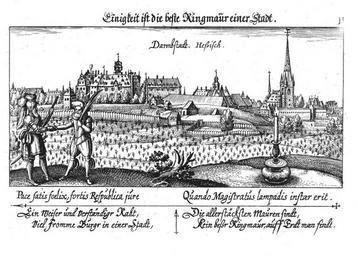 Einigkeit ist die beste Ringmaür einer Stadt.
Darmbstadt. Hessisch.
Pace satis foelix, fortis Respublica jure
Quando Magistratus lampadis instar erit.
Ein Weiser und Verständiger Raht,
Die allerstärcksten Mauren sindt,
Viel fromme Bürger in einer Stadt,
Kein beßr Ringmaur, auff Erdt man findt.